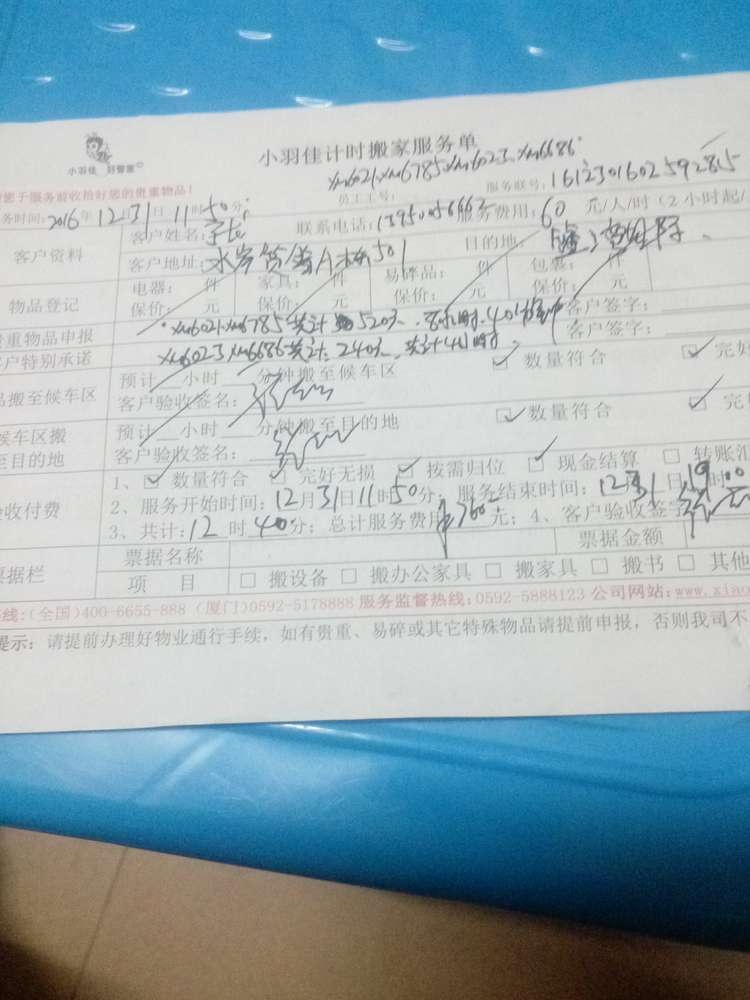 小羽佳 好管家
小羽佳计时搬家服务单
xm6021.xm6785.xm6023.xm6686
员工工号: 服务联号: 161230160259 2815
您于服务前收拾好您的贵重物品!
务时间: 2016年12月31日11时50分 联系电话: 服务费用: 60 元/人/时(2小时起/
客户资料 客户姓名:
客户地址: A栋501 目的地:
物品登记 电器: 件 家具: 件 易碎品: 件 包裹: 件
保价: 元 保价: 元 保价: 元 保价: 元
贵重物品申报 xm6021.xm6785共计 520元. 8小时.40分钟 客户签字:
户特别承诺 xm6023 xm6686共计.240元.共计4小时. 客户签字:
品搬至候车区 预计 小时 分钟搬至候车区 数量符合 完好
客户验收签名:
候车区搬 预计 小时 分钟搬至目的地 数量符合 完好
至目的地 客户验收签名:
验收付费 1、 数量符合 完好无损 按需归位 现金结算 转账汇
2、服务开始时间: 12月31日11时50分; 服务结束时间: 12月31日19时00
3、共计: 12 时 40分; 总计服务费用 760元; 4、客户验收签字
票据栏 票据名称 票据金额
项 目 搬设备 搬办公家具 搬家具 搬书 其他
线:(全国)400-6655-888 (厦门)0592-5178888 服务监督热线:0592-5888123 公司网站:www.xiao
提示: 请提前办理好物业通行手续,如有贵重、易碎或其它特殊物品请提前申报,否则我司不